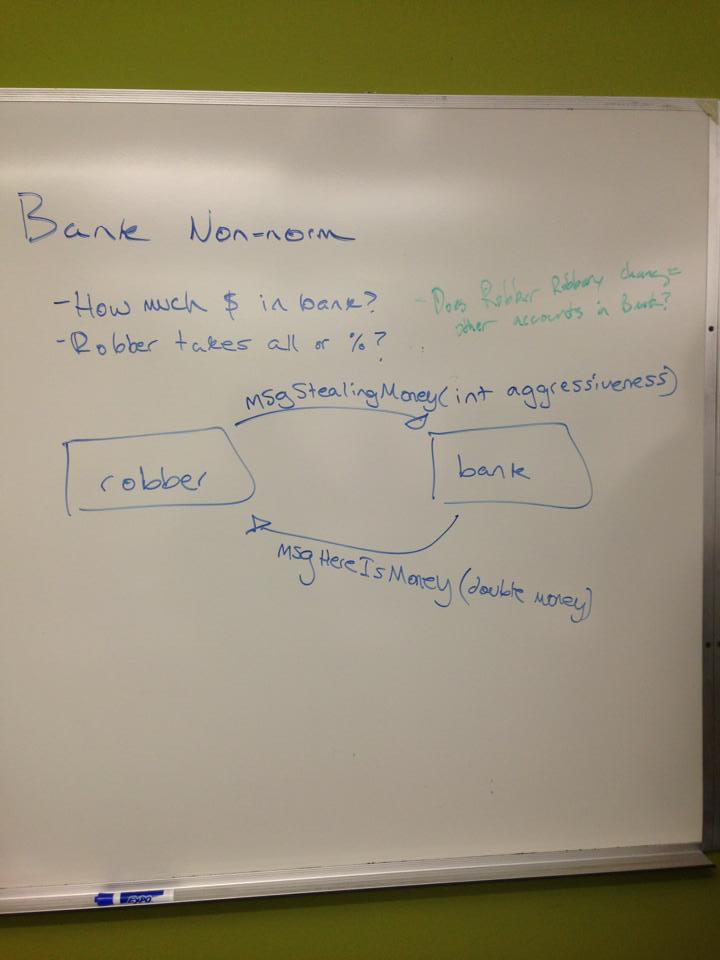 Bank Non-norm
-How much $ in bank?
-Robber takes all or %?
-Does Robber Robbery change
other accounts in Bank?
msgStealingMoney(int aggressiveness)
robber
bank
msgHereIsMoney(double money)
EXPO